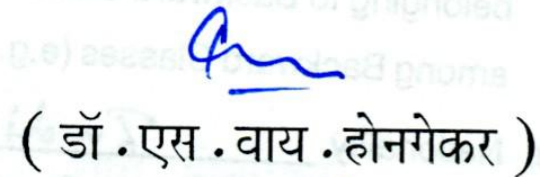 ( डॉ. एस. वाय. होनगेकर )